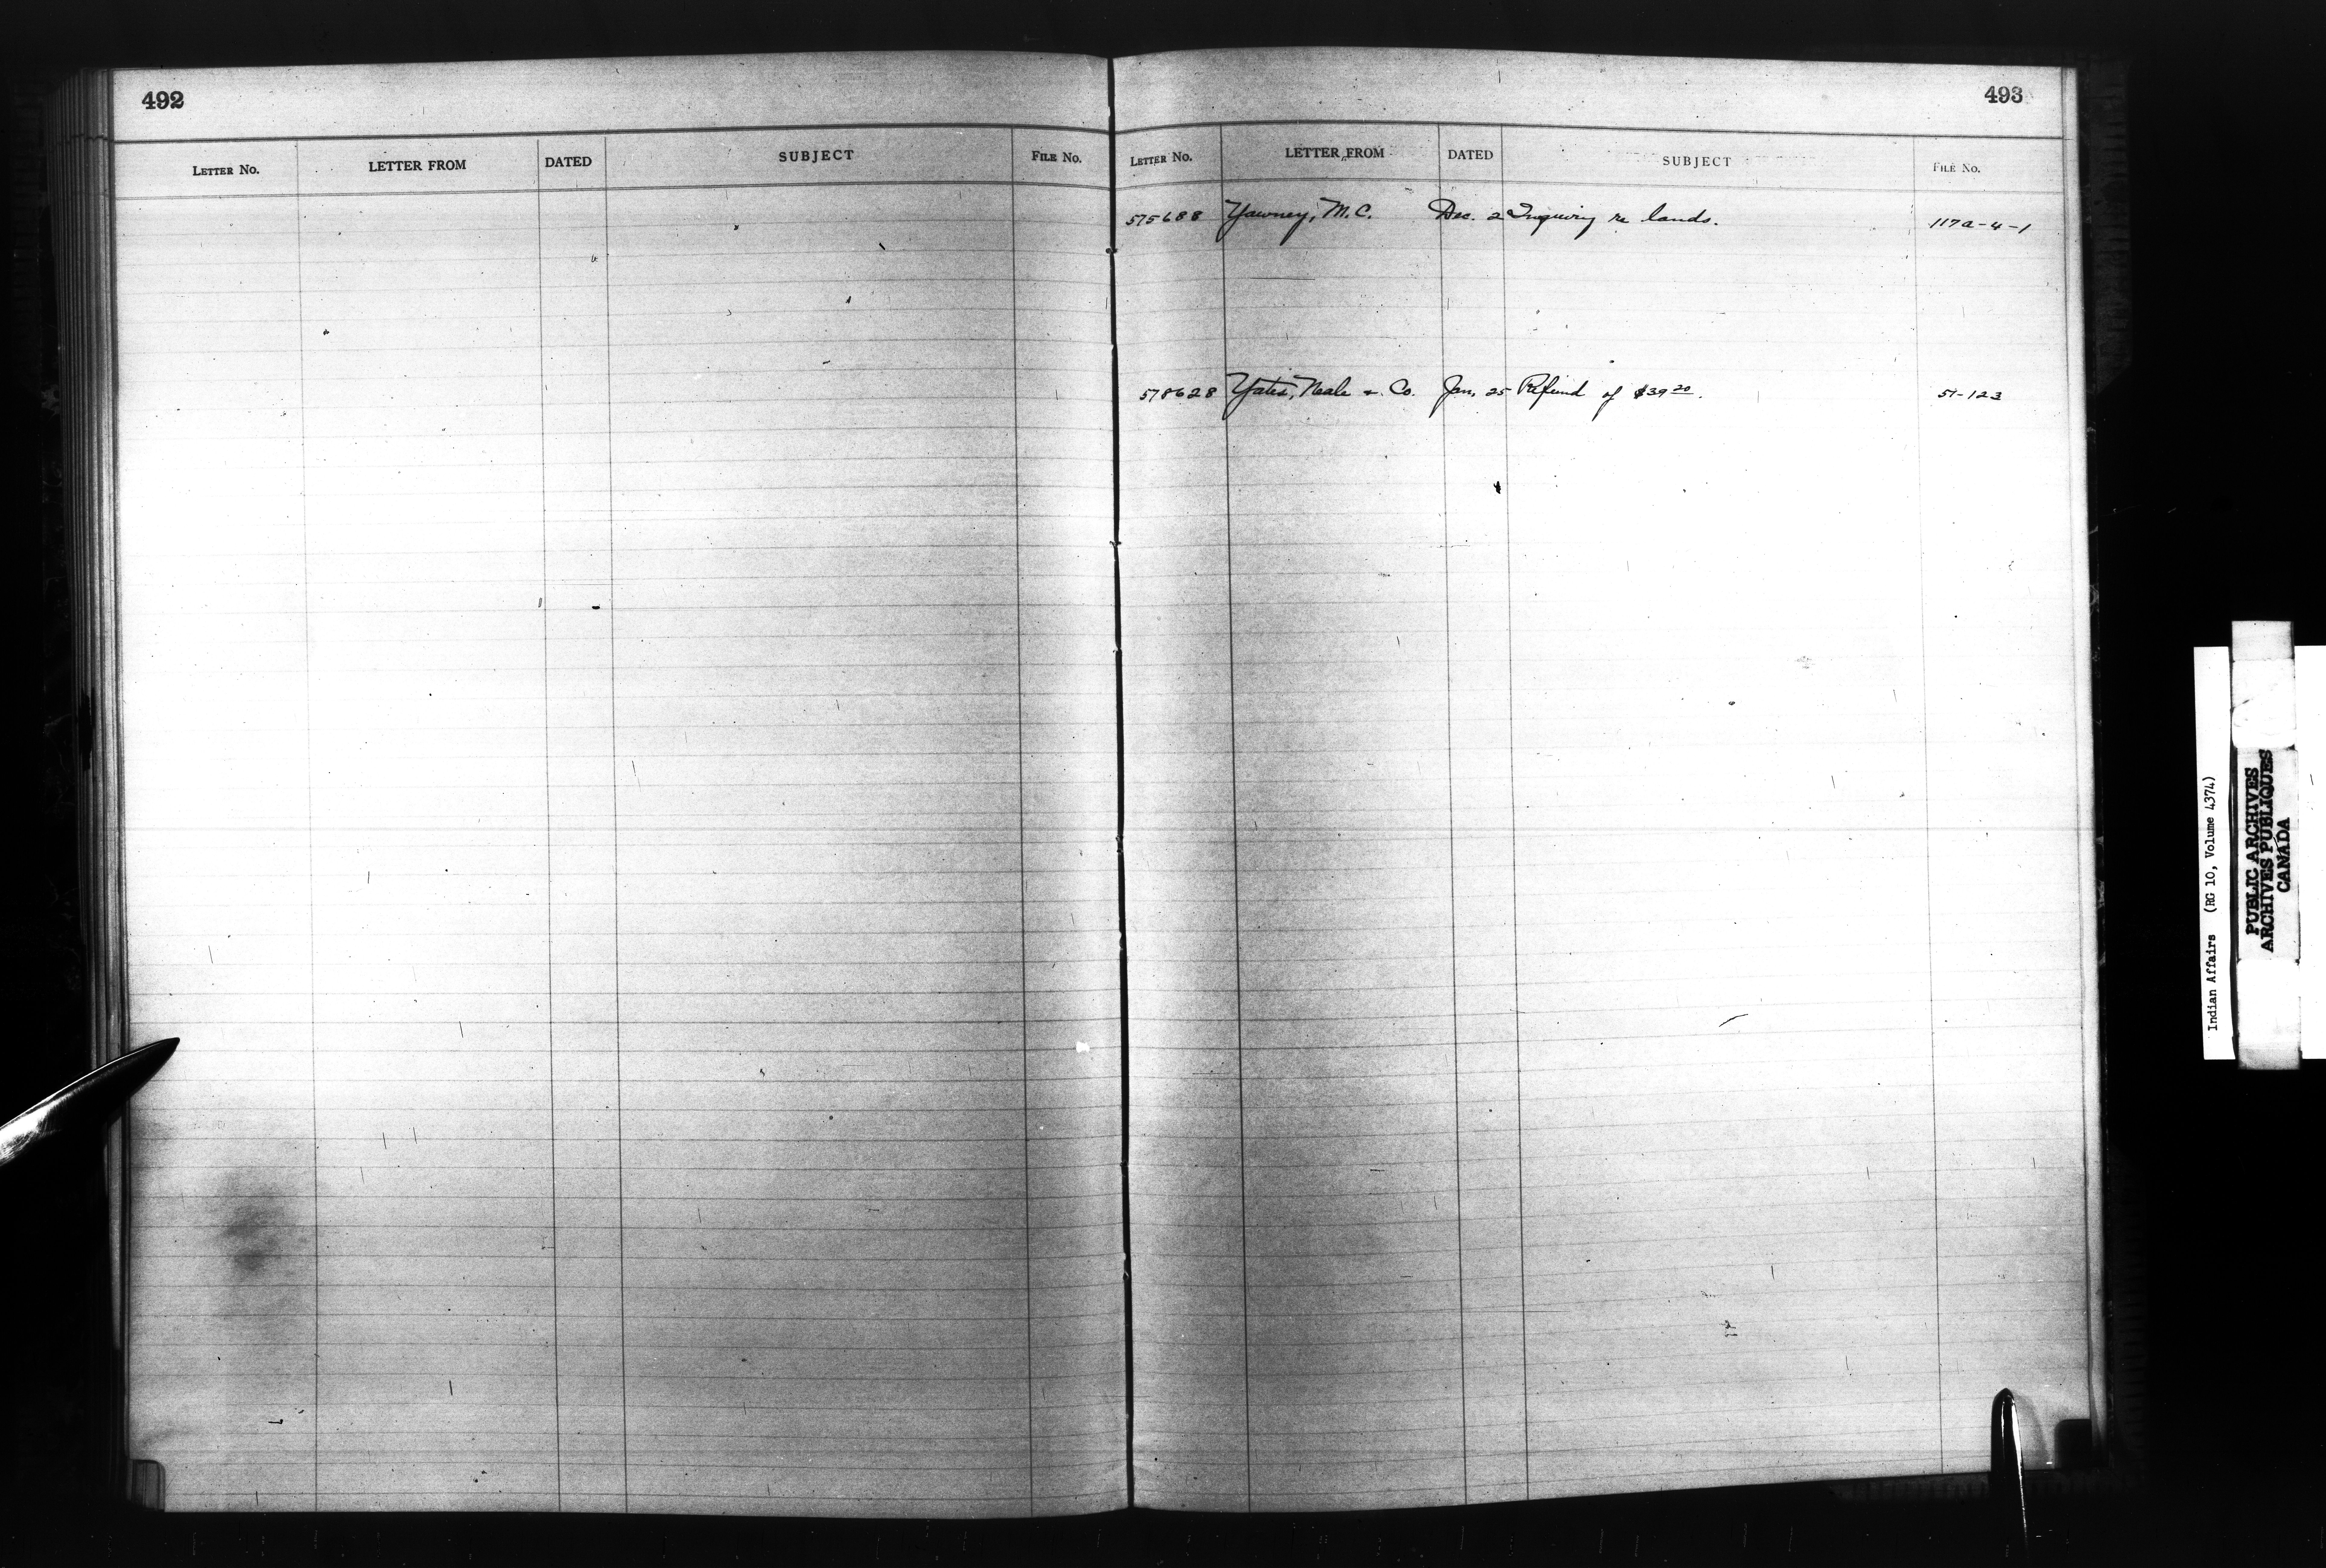 492
LETTER NO. LETTER FROM DATED SUBJECT FILE NO.
493
LETTER NO. LETTER FROM DATED SUBJECT FILE NO.
575688 Yawney, M.C. Dec. 2 Inquiry re lands. 117a-4-1
578628 Yates, Neale & Co. Jan. 25 Refund of $39 20. 51-123
Indian Affairs (RG 10, Volume 4374)
PUBLIC ARCHIVES
ARCHIVES PUBLIQUES
CANADA